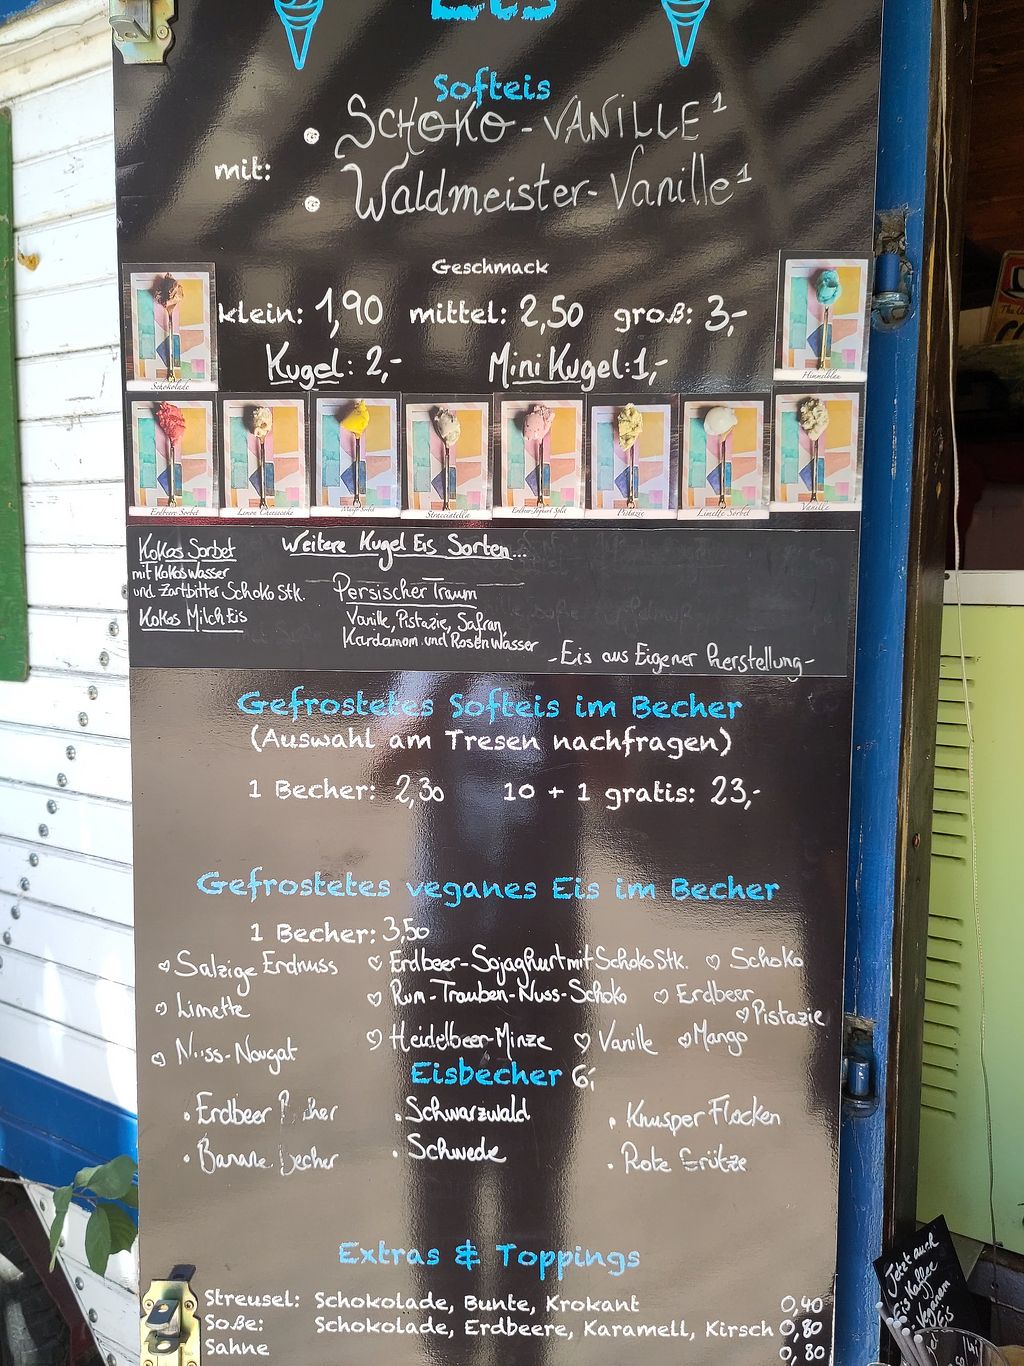 Eis
Softeis
mit:
SCHOKO-VANILLE¹
Waldmeister-Vanille¹
Geschmack
klein: 1,90 mittel: 2,50 groß: 3,-
Kugel: 2,- Mini Kugel: 1,-
Schokolade
Himmelblau
Erdbeere Sorbet
Limon Cheesecake
Mango Sorbet
Stracciatella
Erdbeer-Joghurt Split
Pistazie
Limette Sorbet
Vanille
Weitere Kugel Eis Sorten...
Kokos Sorbet
mit Kokoswasser
und Zartbitter Schoko Stk.
Kokos Milch Eis
Persischer Traum
Vanille, Pistazie, Safran,
Kardamom und Rosenwasser
-Eis aus Eigener Herstellung-
Gefrostetes Softeis im Becher
(Auswahl am Tresen nachfragen)
1 Becher: 2,30 10 + 1 gratis: 23,-
Gefrostetes veganes Eis im Becher
1 Becher: 3,50
♡ Salzige Erdnuss ♡ Erdbeer-Sojaghurt mit Schoko Stk. ♡ Schoko
♡ Limette ♡ Rum-Trauben-Nuss-Schoko ♡ Erdbeer
♡ Pistazie
♡ Nuss-Nougat ♡ Heidelbeer-Minze ♡ Vanille ♡ Mango
Eisbecher 6,-
• Erdbeer • Schwarzwald • Knusper Flocken
• Banane Becher • Schwede • Rote Grütze
Extras & Toppings
Streusel: Schokolade, Bunte, Krokant 0,40
Soße: Schokolade, Erdbeere, Karamell, Kirsch 0,80
Sahne 0,80
Jetzt auch
Eiskaffee
Veganem
Eis